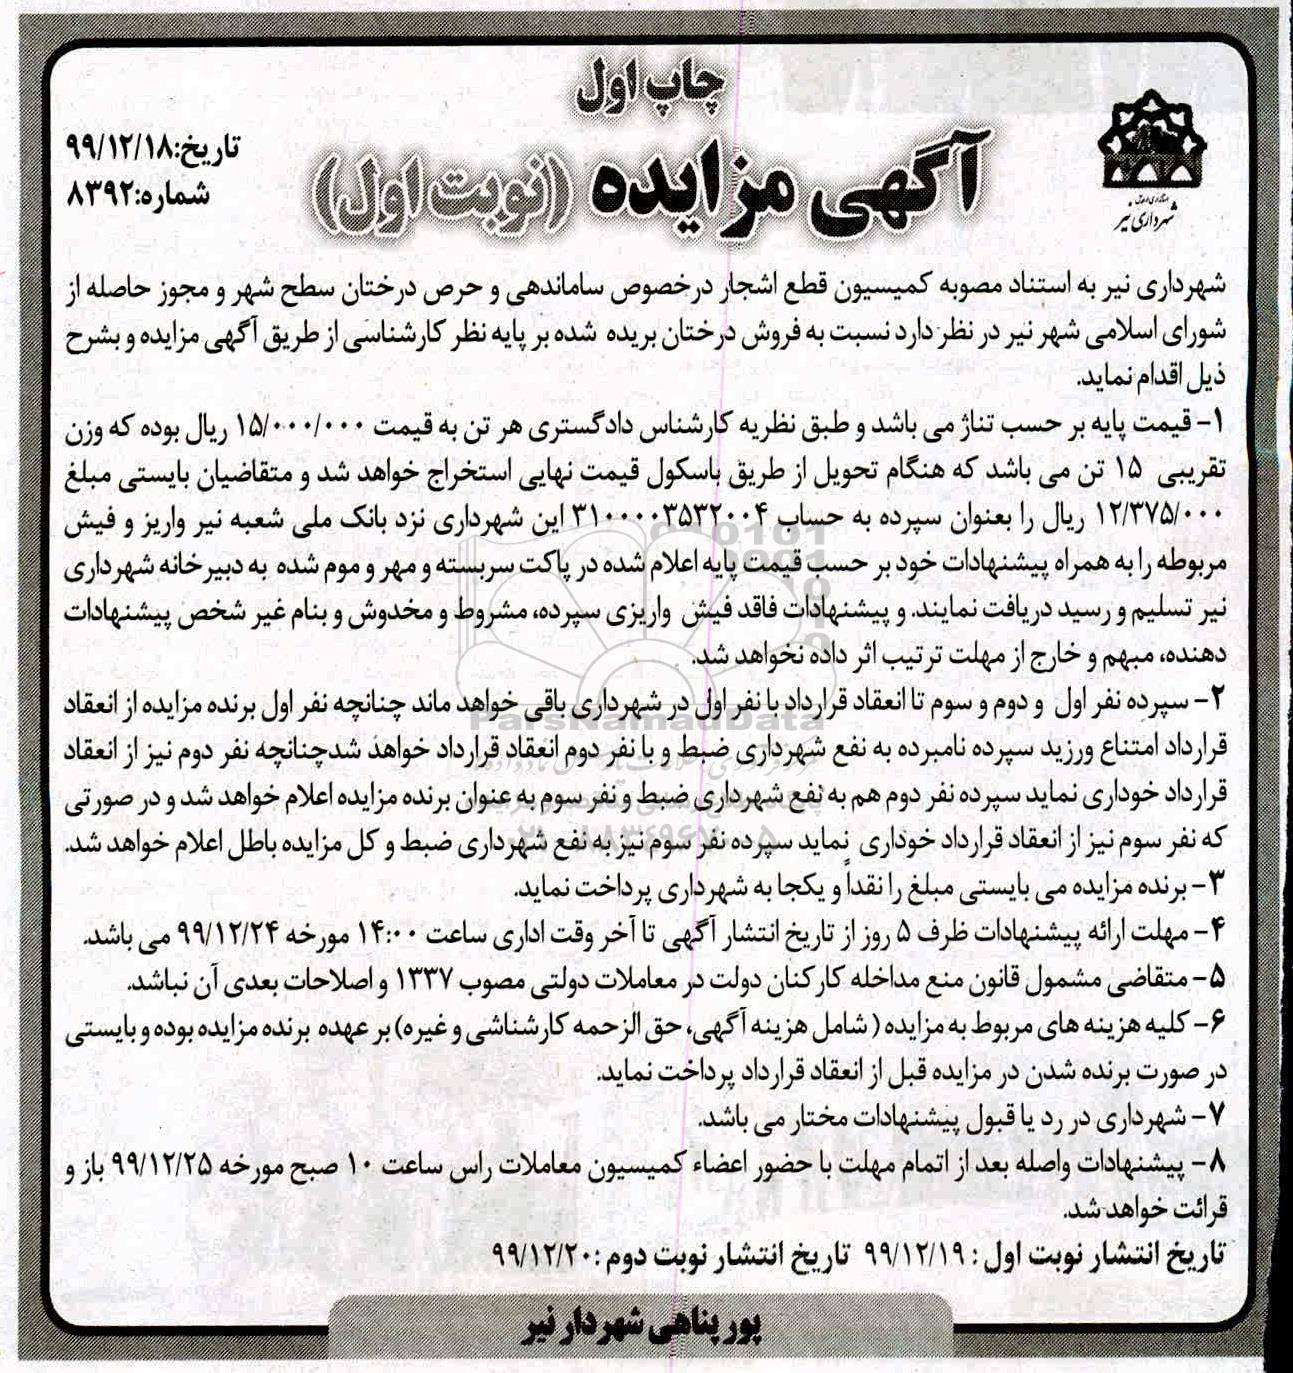 چاپ اول
آگهی مزایده (نوبت اول)
تاریخ:۹۹/۱۲/۱۸
شماره:۸۳۹۲
شهرداری نیر
شهرداری نیر به استناد مصوبه کمیسیون قطع اشجار درخصوص ساماندهی و حرص درختان سطح شهر و مجوز حاصله از
شورای اسلامی شهر نیر در نظر دارد نسبت به فروش درختان بریده شده بر پایه نظر کارشناسی از طریق آگهی مزایده و بشرح
ذیل اقدام نماید.
۱- قیمت پایه بر حسب تناژ می باشد و طبق نظریه کارشناس دادگستری هر تن به قیمت ۱۵/۰۰۰/۰۰۰ ریال بوده که وزن
تقریبی ۱۵ تن می باشد که هنگام تحویل از طریق باسکول قیمت نهایی استخراج خواهد شد و متقاضیان بایستی مبلغ
۱۲/۳۷۵/۰۰۰ ریال را بعنوان سپرده به حساب ۳۱۰۰۰۰۳۵۳۲۰۰۴ این شهرداری نزد بانک ملی شعبه نیر واریز و فیش
مربوطه را به همراه پیشنهادات خود بر حسب قیمت پایه اعلام شده در پاکت سربسته و مهر و موم شده به دبیرخانه شهرداری
نیر تسلیم و رسید دریافت نمایند. و پیشنهادات فاقد فیش واریزی سپرده، مشروط و مخدوش و بنام غیر شخص پیشنهادات
دهنده، مبهم و خارج از مهلت ترتیب اثر داده نخواهد شد.
۲- سپرده نفر اول و دوم و سوم تا انعقاد قرارداد با نفر اول در شهرداری باقی خواهد ماند چنانچه نفر اول برنده مزایده از انعقاد
قرارداد امتناع ورزید سپرده نامبرده به نفع شهرداری ضبط و با نفر دوم انعقاد قرارداد خواهد شدچنانچه نفر دوم نیز از انعقاد
قرارداد خوداری نماید سپرده نفر دوم هم به نفع شهرداری ضبط و نفر سوم به عنوان برنده مزایده اعلام خواهد شد و در صورتی
که نفر سوم نیز از انعقاد قرارداد خوداری نماید سپرده نفر سوم نیز به نفع شهرداری ضبط و کل مزایده باطل اعلام خواهد شد.
۳- برنده مزایده می بایستی مبلغ را نقداً و یکجا به شهرداری پرداخت نماید.
۴- مهلت ارائه پیشنهادات ظرف ۵ روز از تاریخ انتشار آگهی تا آخر وقت اداری ساعت ۱۴:۰۰ مورخه ۹۹/۱۲/۲۴ می باشد.
۵- متقاضی مشمول قانون منع مداخله کارکنان دولت در معاملات دولتی مصوب ۱۳۳۷ و اصلاحات بعدی آن نباشد.
۶- کلیه هزینه های مربوط به مزایده ( شامل هزینه آگهی، حق الزحمه کارشناشی و غیره) بر عهده برنده مزایده بوده و بایستی
در صورت برنده شدن در مزایده قبل از انعقاد قرارداد پرداخت نماید.
۷- شهرداری در رد یا قبول پیشنهادات مختار می باشد.
۸- پیشنهادات واصله بعد از اتمام مهلت با حضور اعضاء کمیسیون معاملات راس ساعت ۱۰ صبح مورخه ۹۹/۱۲/۲۵ باز و
قرائت خواهد شد.
تاریخ انتشار نوبت اول : ۹۹/۱۲/۱۹ تاریخ انتشار نوبت دوم :۹۹/۱۲/۲۰
پورپناهی شهردار نیر
ParsNamadData